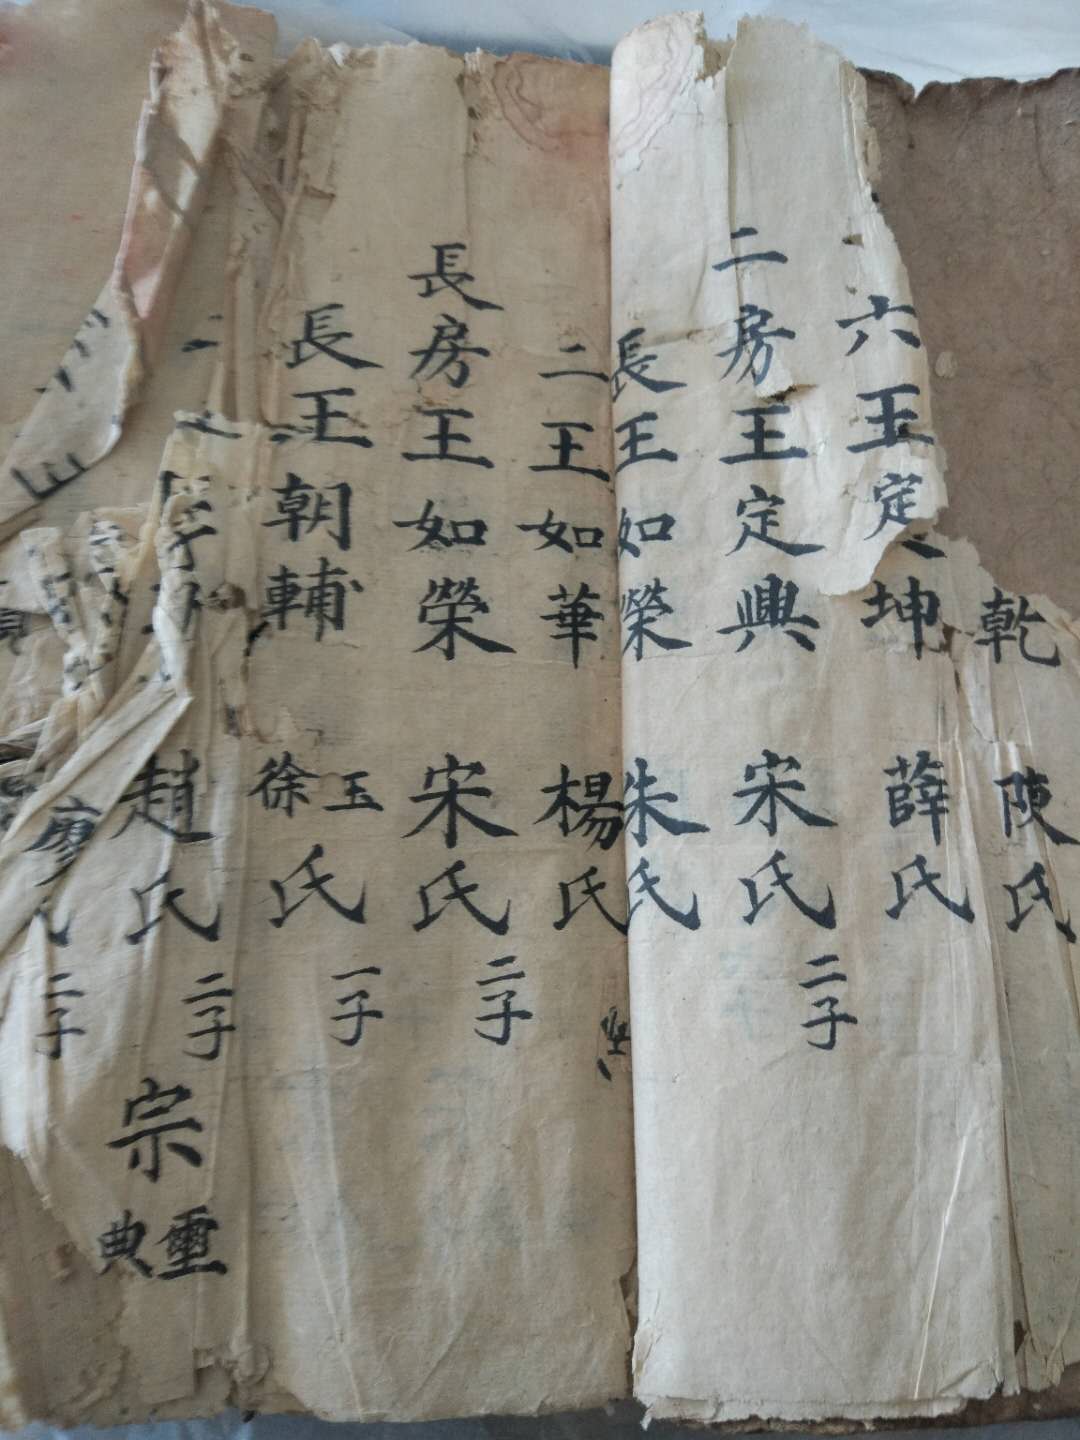 乾 陳氏
六王定坤 薛氏
二房王定興 宋氏 二子
長王如榮 朱氏
二王如華 楊氏
長房王如榮 宋氏 二子
長王朝輔 玉徐氏 一子
趙氏 二子 宗璽典
廖 二子